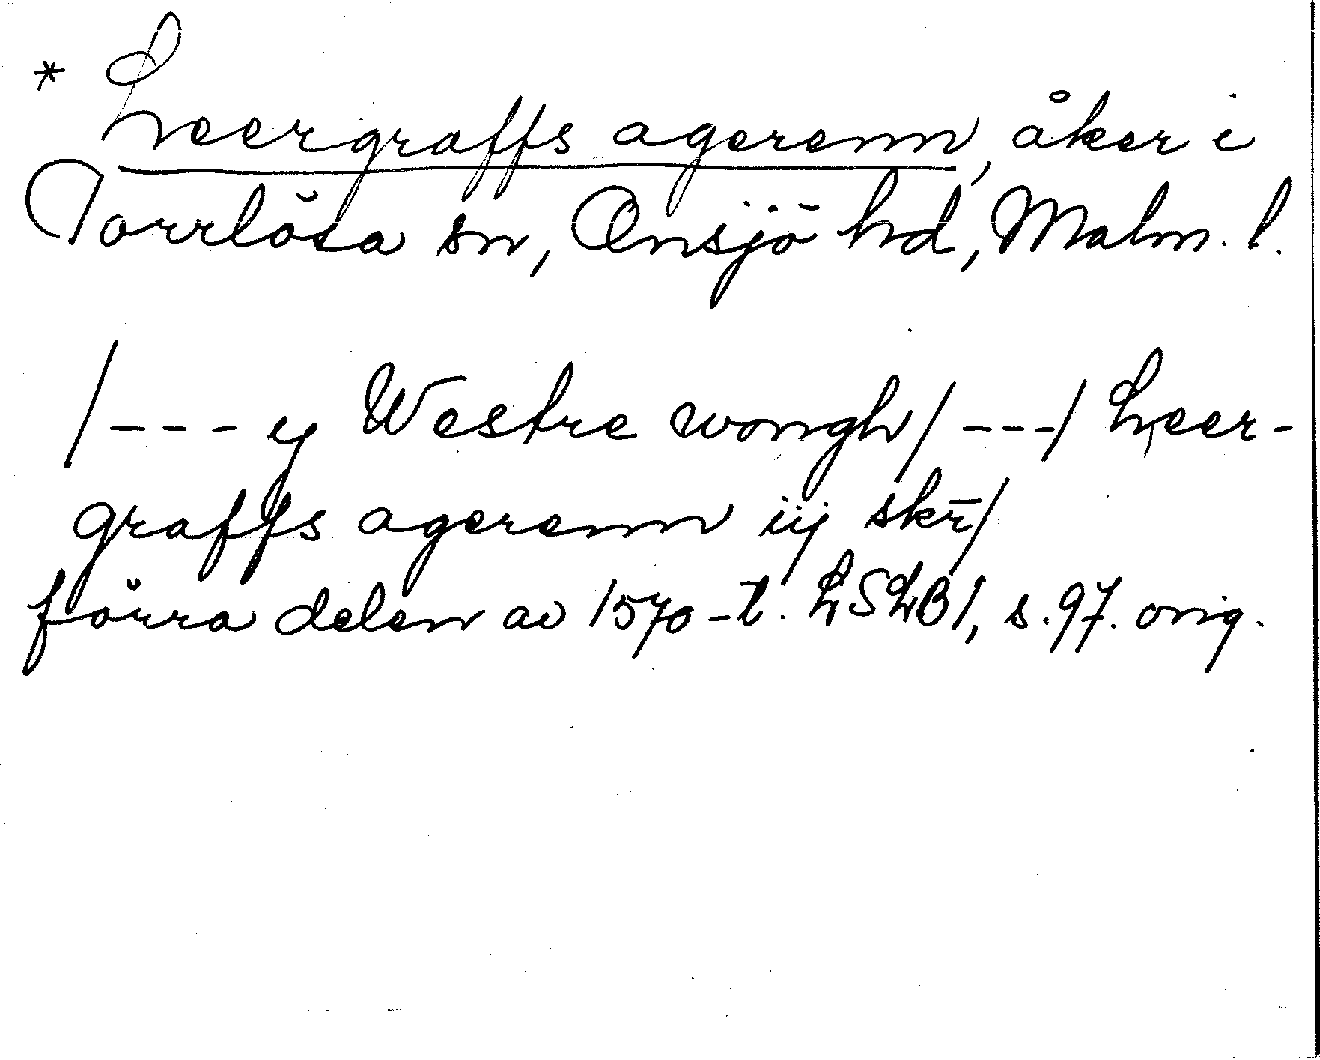 * Leergraffs agerenn, åker i
Torrlösa sn, Onsjö hd, Malm. l.
/--- y Westre wongh/---/ Leer-
graffs agerenn iij skr̄/
förra delen av 1570-t. LSLB 1, s. 97. orig.